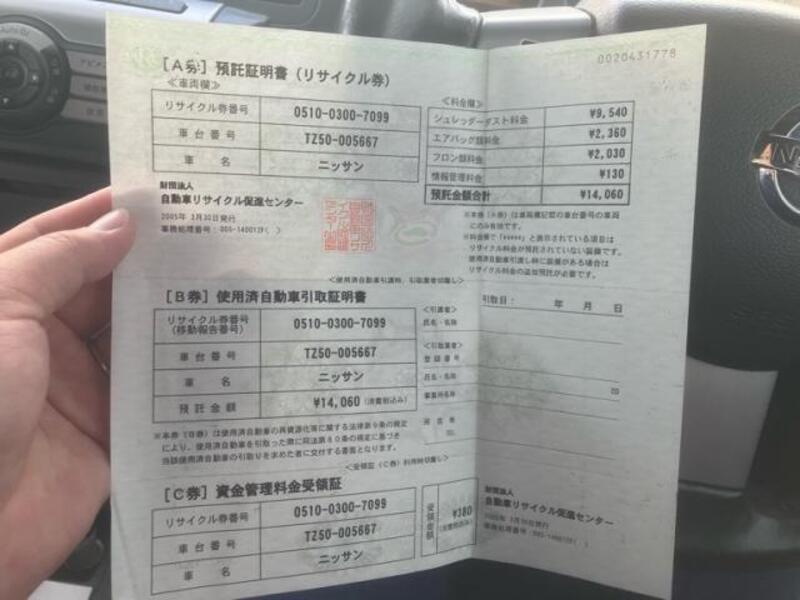 0020431778
[A券] 預託証明書(リサイクル券)
≪車両欄≫
リサイクル券番号 0510-0300-7099
車台番号 TZ50-005667
車名 ニッサン
≪料金欄≫
シュレッダーダスト料金 ¥9,540
エアバッグ類料金 ¥2,360
フロン類料金 ¥2,030
情報管理料金 ¥130
預託金額合計 ¥14,060
財団法人
自動車リサイクル促進センター
2005年 3月30日発行
※本券(A券)は車両欄記載の車台番号の車両
にのみ有効です。
※料金欄で「*****」と表示されている項目は
リサイクル料金が預託されていない装備です。
使用済自動車引渡し時に装備がある場合は
リサイクル料金の追加預託が必要です。
<使用済自動車引渡時、引取業者切離し>
[B券] 使用済自動車引取証明書
リサイクル券番号
(移動報告番号) 0510-0300-7099
車台番号 TZ50-005667
車名 ニッサン
預託金額 ¥14,060 (消費税込み)
引取日: 年 月 日
<引渡者>
氏名・名称
<引取業者>
登録番号
氏名・名称
事業所名称
所在地
TEL
※本券(B券)は使用済自動車の再資源化等に関する法律第9条の規定
により、使用済自動車を引取った際に同法第80条の規定に基づき
当該使用済自動車の引取りを求めた者に交付する書面となります。
<受領証(C券)利用時切離し>
[C券] 資金管理料金受領証
リサイクル券番号 0510-0300-7099
車台番号 TZ50-005667
車名 ニッサン
受領金額 ¥380
(消費税込み)
財団法人
自動車リサイクル促進センター
2005年 3月30日発行